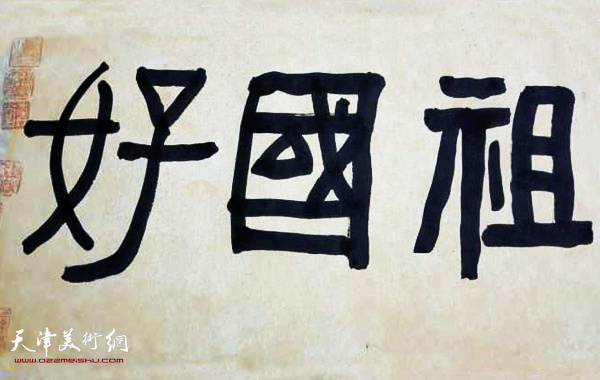 祖國好
天津美術網
www.022meishu.com